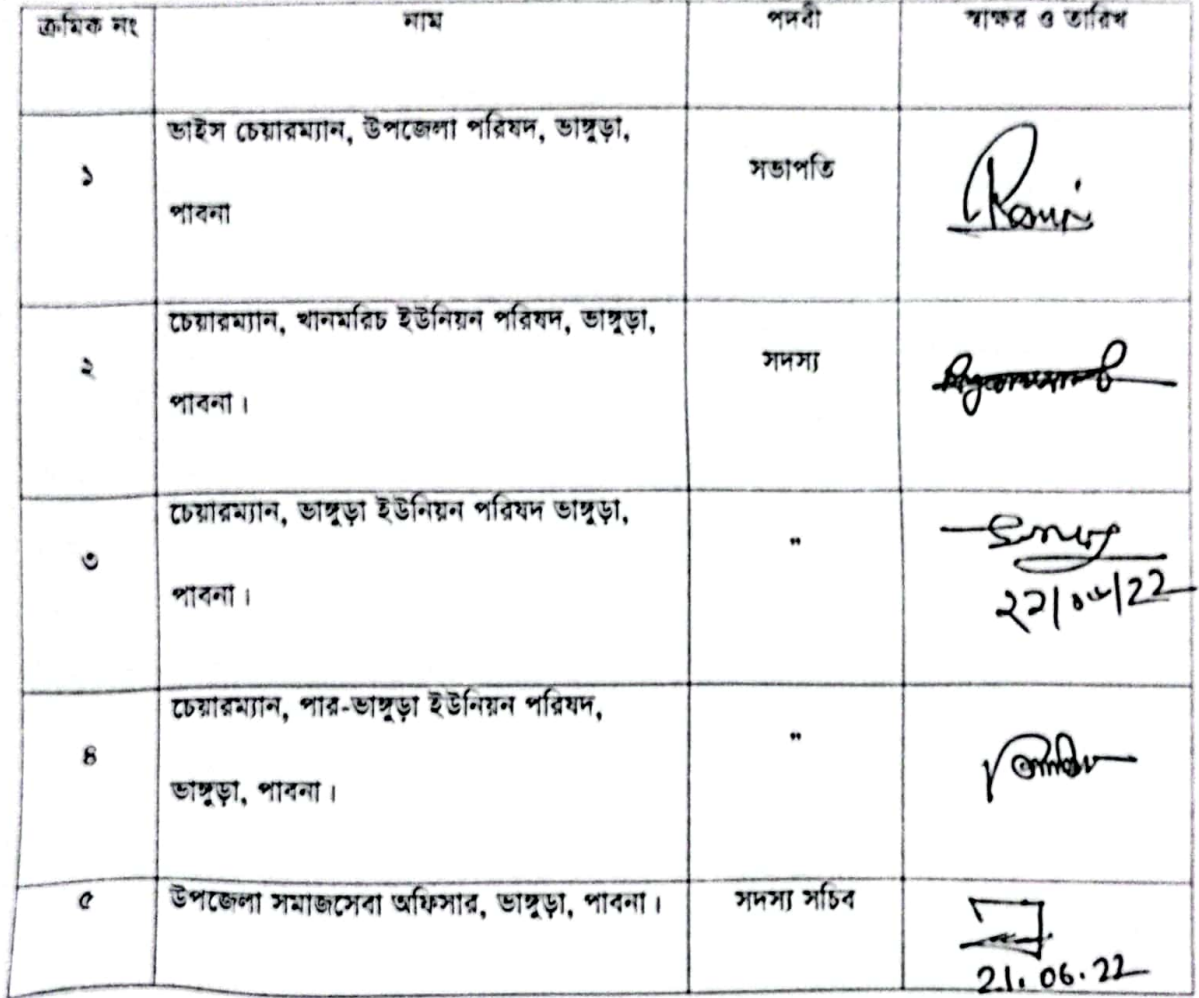 ক্রমিক নং নাম পদবী স্বাক্ষর ও তারিখ
ভাইস চেয়ারম্যান, উপজেলা পরিষদ, ভাঙ্গুড়া,
১ সভাপতি
পাবনা
চেয়ারম্যান, খানমরিচ ইউনিয়ন পরিষদ, ভাঙ্গুড়া,
২ সদস্য
পাবনা।
চেয়ারম্যান, ভাঙ্গুড়া ইউনিয়ন পরিষদ ভাঙ্গুড়া,
৩ "
পাবনা।
চেয়ারম্যান, পার-ভাঙ্গুড়া ইউনিয়ন পরিষদ,
৪ "
ভাঙ্গুড়া, পাবনা।
৫ উপজেলা সমাজসেবা অফিসার, ভাঙ্গুড়া, পাবনা। সদস্য সচিব
21.06.22